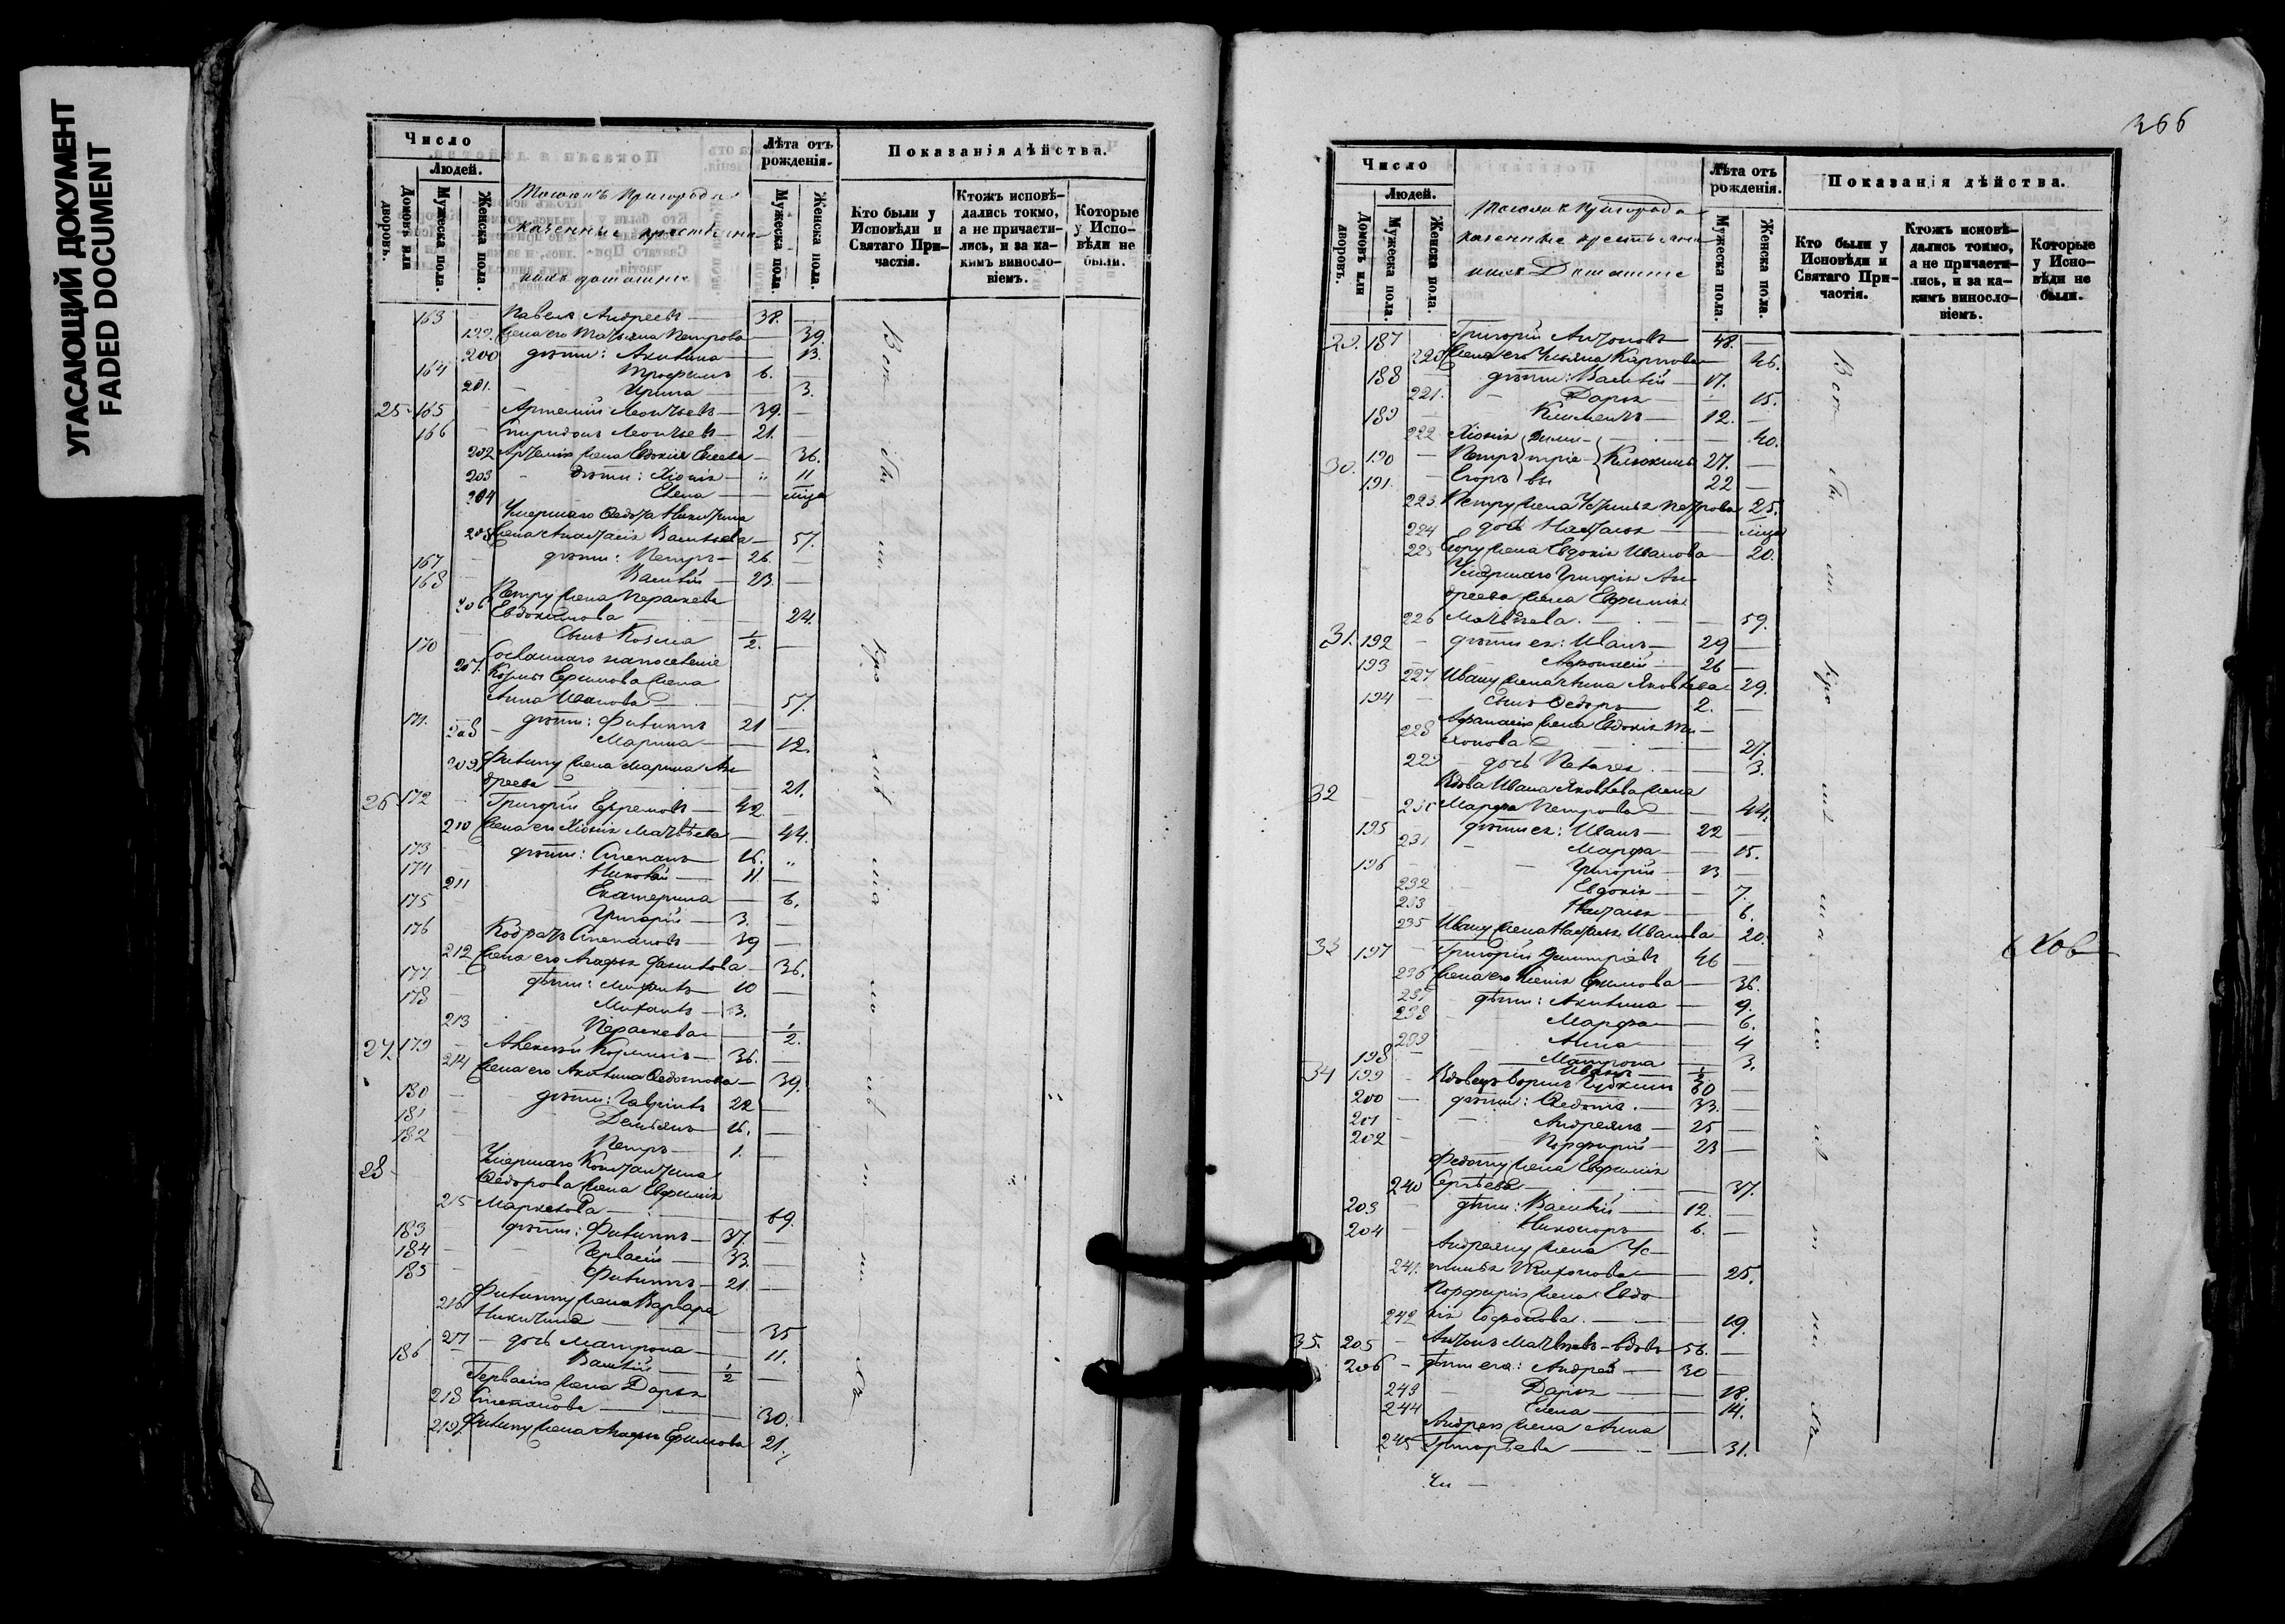 УГАСАЮЩИЙ ДОКУМЕНТ
FADED DOCUMENT
Число
Людей.
Домовъ или дворовъ.
Мужеска пола.
Женска пола.
казенные крестьяне
Лѣта отъ рожденія.
Мужеска пола.
Женска пола.
Показанія дѣйства.
Кто были у Исповѣди и Святаго Причастія.
Ктожъ исповѣдались токмо, а не причастились, и за какимъ винословіемъ.
Которые у Исповѣди не были.
163 Павелъ Андреевъ 38.
199. Жена его Татьяна Петрова 39.
200 дѣти: Акилина 13.
164 Трофимъ 6.
201. Ирина 3.
25 165 Артемій Леонтьевъ 39.
166 Спиридонъ Леонтьевъ 21.
202 Артемія жена Евдокія Елеева 36.
203 дѣти: Хіонія 11
204 Елена мѣся
Умершаго Ѳедота Никитина
205 Жена Анастасія Васильева 57.
167 дѣти: Петръ 26.
168 Василій 23.
Петру жена Параскева
206 Евдокимова 24.
170 Сынъ Козьма 1/2.
Сосланнаго на поселеніе
207. Козмы Ефимова жена
Анна Иванова 57.
171. дѣти: Филиппъ 21
208 Марина 12.
209 Филипу жена Марина Ан
дреева 21.
26 172 Григорій Ефремовъ 42.
210 Жена его Хіонія Матвѣева 44.
173 дѣти: Степанъ 16. "
174 Николай 11.
211 Екатерина 6.
175 Григорій 3.
176 Кодратъ Степановъ 39
212 Жена его Агафья 36.
177 дѣти: 10
178 Михаилъ 3.
213 Параскева 1/2.
27. 179 Алексѣй Козминъ 36.
214 Жена его Акилина Ѳедотова 39.
180 дѣти: Гавріилъ 22
181 Демьянъ 16.
182 Петръ 1.
28 Умершаго Константина
Ѳедорова жена Евфимія
215 Маркелова 69.
183 дѣти: Филиппъ 37.
184 Гервасій 33.
185 Филиппъ 21.
Филиппу жена Варвара
216 Никитина 35
217 дочь Матрона 11.
186 Василій 1/2
Гервасія жена Дарья
218 Степанова 30.
219 Филипу жена Агафья Ефимова 21.
366
Число
Людей.
Домовъ или дворовъ.
Мужеска пола.
Женска пола.
казенные крестьяне
Лѣта отъ рожденія.
Мужеска пола.
Женска пола.
Показанія дѣйства.
Кто были у Исповѣди и Святаго Причастія.
Ктожъ исповѣдались токмо, а не причастились, и за какимъ винословіемъ.
Которые у Исповѣди не были.
29. 187 Григорій Антоновъ 48.
220 Жена его Ульяна Карпова 46.
188 дѣти: Василій 17.
221. Дарья 15.
189 Климентъ 12.
222 Хіонія Дими- 40.
30. 190 Петръ тріе- 27.
191 Егоръ вы 22
223 Петру жена Устинья Петрова 25.
224 дочь Наталья мѣся
225 Егору жена Евдокія Иванова 20.
Умершаго Григорія Ан
дреева жена Евфимія
226 Матвѣева. 59.
31. 192 дѣти ея: Иванъ 29
193 Афанасій 26
227 Ивану жена Анна Яковлева 29.
194 Сынъ Ѳедоръ 2.
228 Афанасія жена Евдокія Ти
хонова 27.
229 дочь Пелагея 3.
32 Вдова Ивана Яковлева жена
230 Марфа Петрова 44.
195 дѣти ея: Иванъ 22
231 Марфа 15.
196 Григорій 13
232 Евдокія 7.
233 Наталья 6.
235 Ивану жена Наталья Иванова 20.
33 197 Григорій Димитріевъ 46
236 Жена его Ксенія Ефимова 36.
237 дѣти: Акилина 9.
238 Марфа 6.
239 Анна 4
198 Матрона 3.
Иванъ 1/2
34 199 Вдовецъ Борисъ 60
200 дѣти: Ѳедотъ 33.
201 Андреянъ 25
202 Порфирій 23
Федоту жена Евфимія
240 Сергѣева 37.
203 дѣти: Василій 12.
204 Никаноръ 6.
Андреяну жена Ус
241. тинья Тихонова 25.
Порфирія жена Евдо
242 кія 19.
35. 205 Антонъ Матвѣевъ - вдовъ 56.
206 дѣти его: Андрей 30
243 Дарья 18.
244 Елена 14.
Андрея жена Анна
245 Григорьева 31.